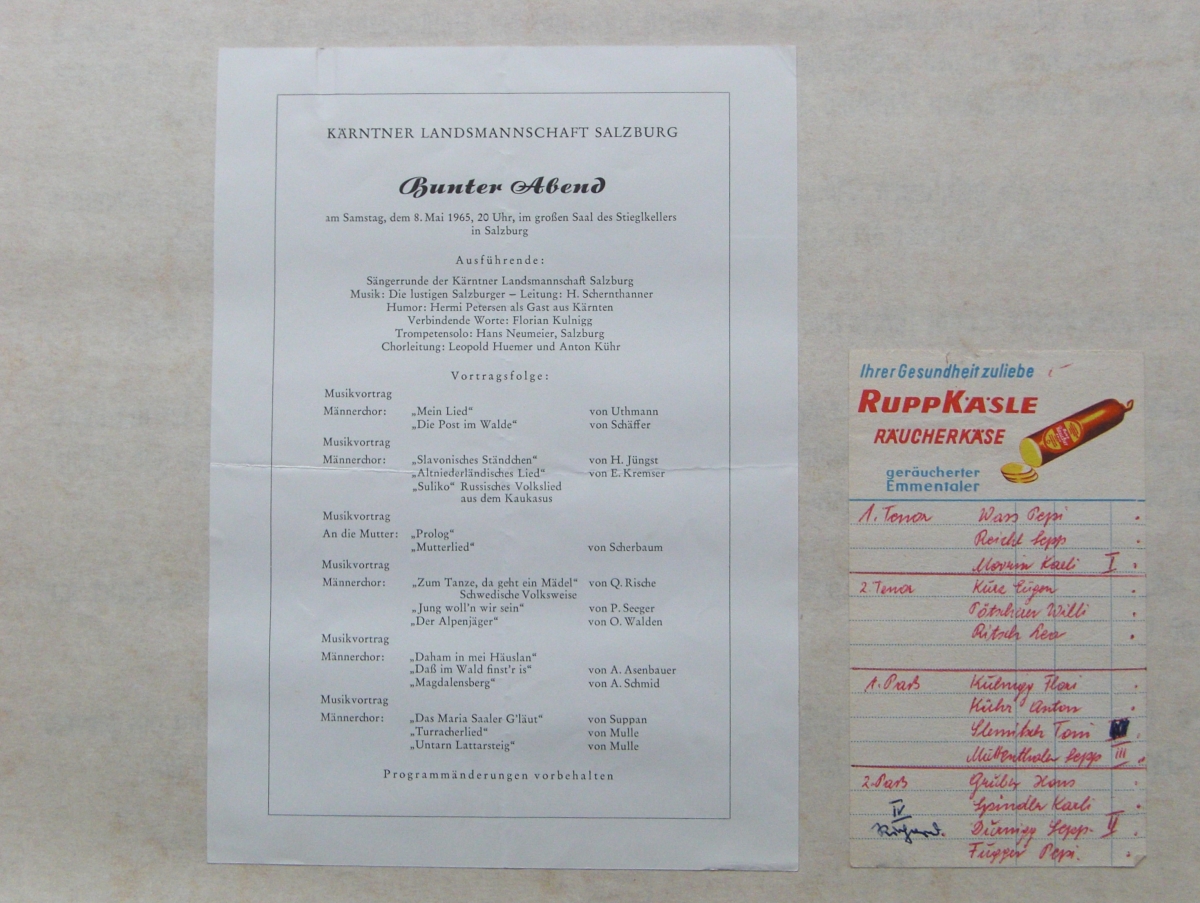 KÄRNTNER LANDSMANNSCHAFT SALZBURG
Bunter Abend
am Samstag, dem 8. Mai 1965, 20 Uhr, im großen Saal des Stieglkellers
in Salzburg
Ausführende:
Sängerrunde der Kärntner Landsmannschaft Salzburg
Musik: Die lustigen Salzburger – Leitung: H. Schernthanner
Humor: Hermi Petersen als Gast aus Kärnten
Verbindende Worte: Florian Kulnigg
Trompetensolo: Hans Neumeier, Salzburg
Chorleitung: Leopold Huemer und Anton Kühr
Vortragsfolge:
Musikvortrag
Männerchor: „Mein Lied“ von Uthmann
„Die Post im Walde“ von Schäffer
Musikvortrag
Männerchor: „Slavonisches Ständchen“ von H. Jüngst
„Altniederländisches Lied“ von E. Kremser
„Suliko“ Russisches Volkslied
aus dem Kaukasus
Musikvortrag
An die Mutter: „Prolog“
„Mutterlied“ von Scherbaum
Musikvortrag
Männerchor: „Zum Tanze, da geht ein Mädel“ von Q. Rische
Schwedische Volksweise
„Jung woll'n wir sein“ von P. Seeger
„Der Alpenjäger“ von O. Walden
Musikvortrag
Männerchor: „Daham in mei Häuslan“
„Daß im Wald finst'r is“ von A. Asenbauer
„Magdalensberg“ von A. Schmid
Musikvortrag
Männerchor: „Das Maria Saaler G'läut“ von Suppan
„Turracherlied“ von Mulle
„Untarn Lattarsteig“ von Mulle
Programmänderungen vorbehalten
Ihrer Gesundheit zuliebe
RUPPKÄSLE
RÄUCHERKÄSE
geräucherter
Emmentaler
1. Tenor Wass Pepi
Reichl Sepp
Karli I
2. Tenor Kurz Eugen
Willi
Ritsch Leo
1. Paß Kulnigg Flori
Kühr Anton
Toni
Mittenthaler Sepp III
2. Paß Gruber Hans
Spindler Karli
IV
Richard. Sepp II
Fugger Pepi.